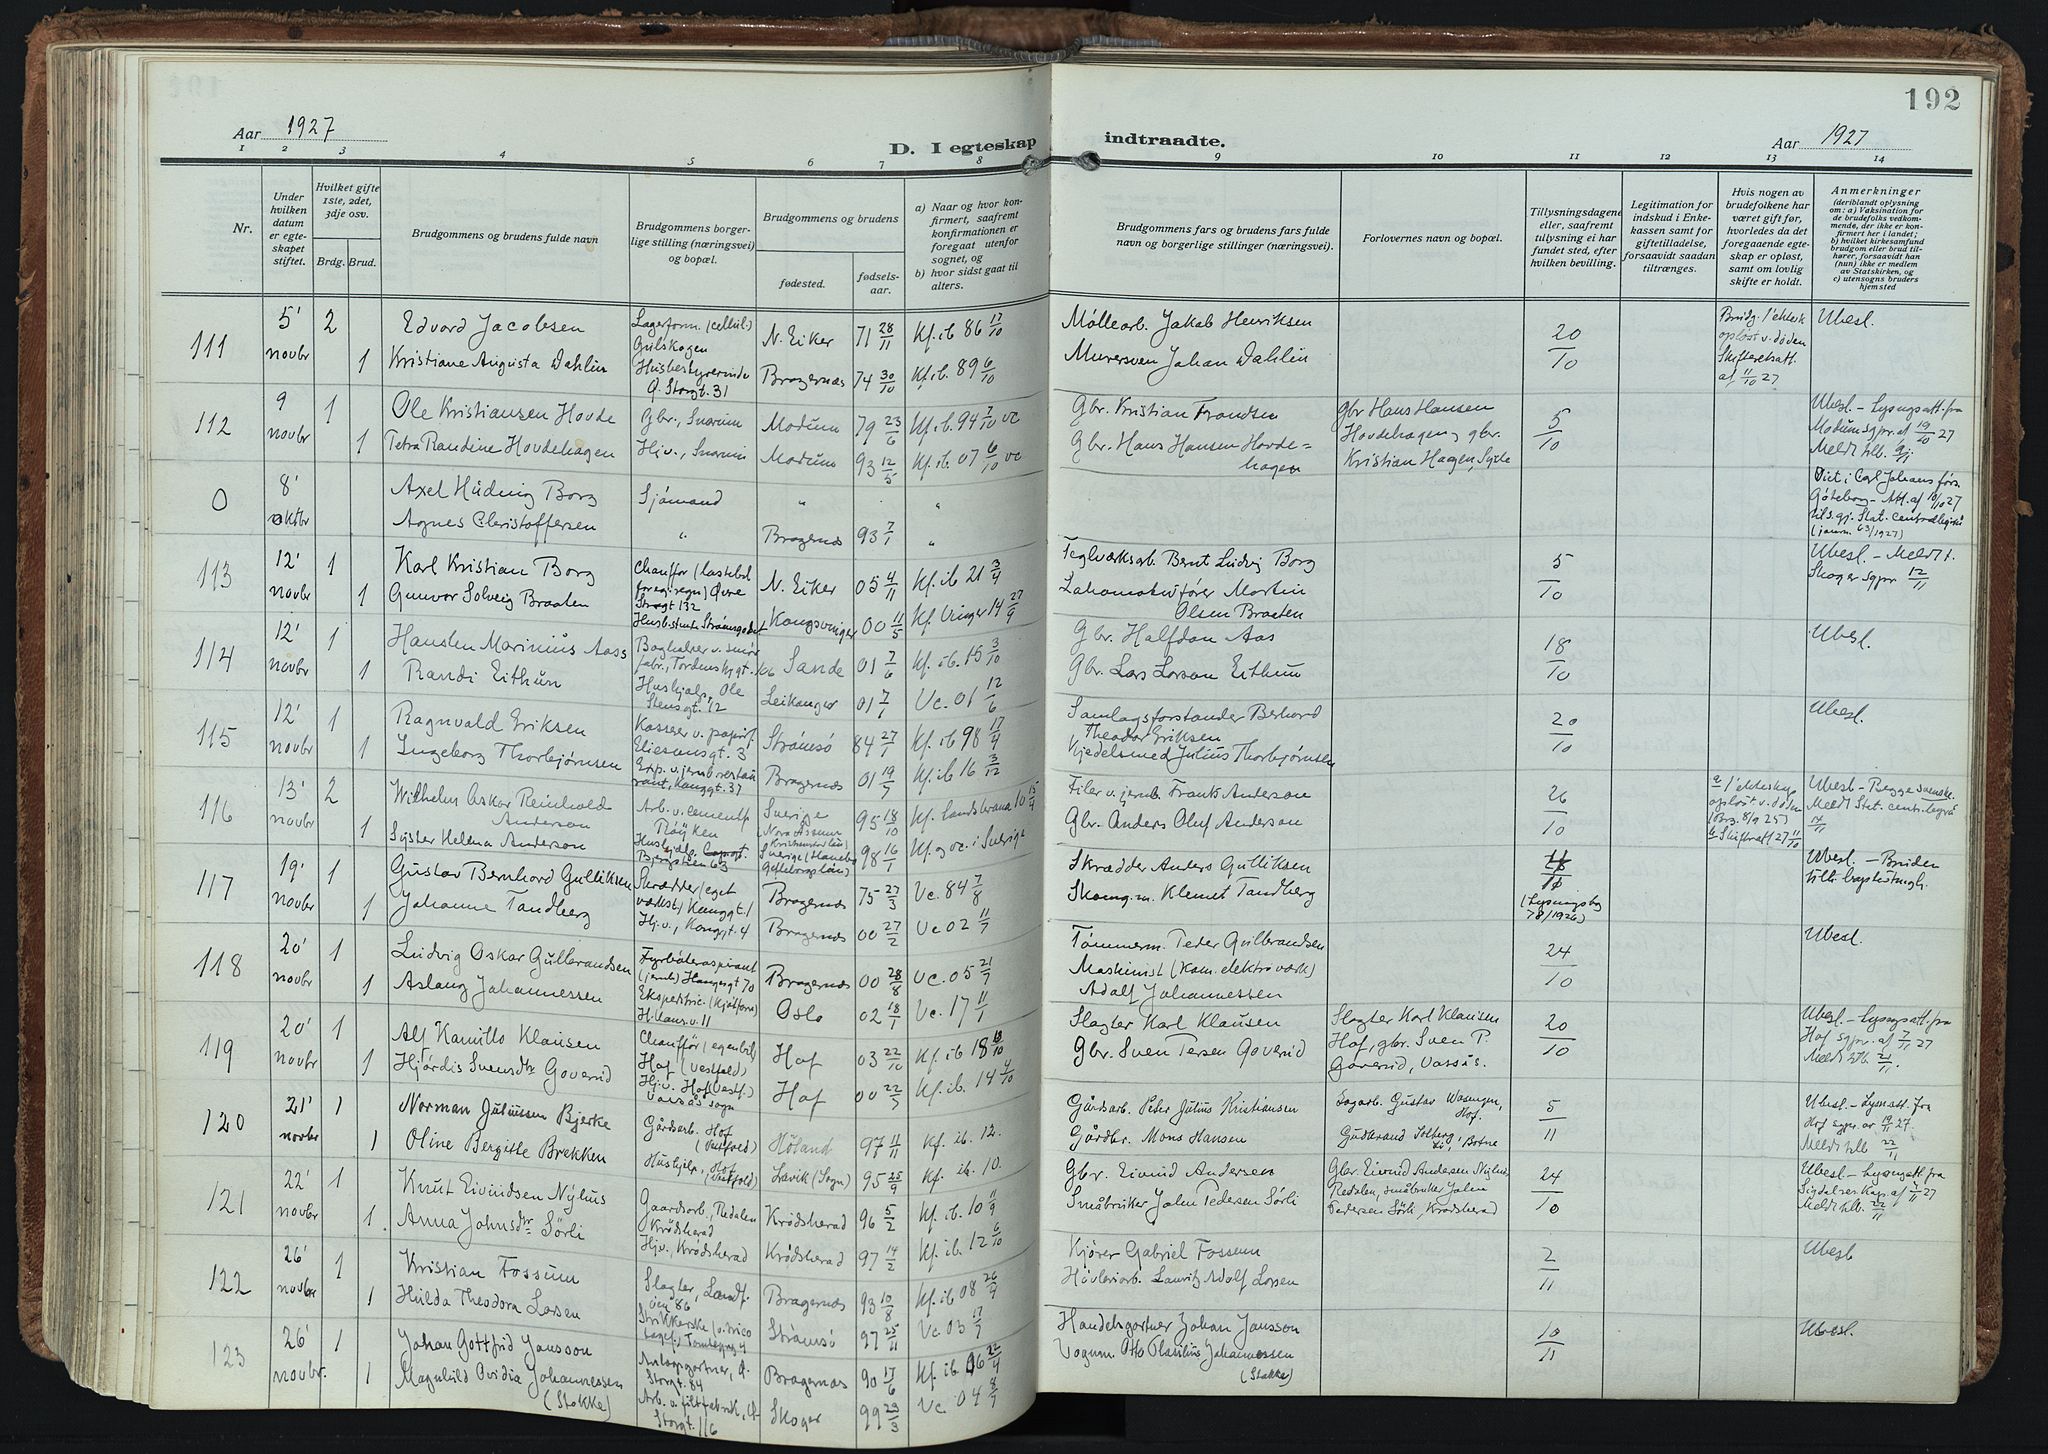 192
Aar 1927
D. I egteskap indtraadte.
Aar 1927
1 2 3 4 5 6 7 8 9 10 11 12 13 14
Nr.
Under hvilken datum er egteskapet stiftet.
Hvilket gifte 1ste, 2det, 3dje osv.
Brdg. Brud.
Brudgommens og brudens fulde navn
Brudgommens borgerlige stilling (næringsvei) og bopæl.
Brudgommens og brudens
fødested.
fødselsaar.
a) Naar og hvor konfirmert, saafremt konfirmationen er foregaat utenfor sognet, og
b) hvor sidst gaat til alters.
Brudgommens fars og brudens fars fulde navn og borgerlige stillinger (næringsvei).
Forlovernes navn og bopæl.
Tillysningsdagene eller, saafremt tillysning ei har fundet sted, efter hvilken bevilling.
Legitimation for indskud i Enkekassen samt for giftetilladelse, forsaavidt saadan tiltrænges.
Hvis nogen av brudefolkene har været gift før, hvorledes da det foregaaende egteskap er opløst, samt om lovlig skifte er holdt.
Anmerkninger
(deriblandt oplysning om: a) Vaksination for de brudefolks vedkommende, der ikke er konfirmert her i landet; b) hvilket kirkesamfund brudgom eller brud tilhører, forsaavidt han (hun) ikke er medlem av Statskirken, og c) utensogns bruders hjemsted
111 5' novbr 2 Edvard Jacobsen Lagerform. (cellul.) Gulskogen N. Eiker 71 28/11 Kf. ib 86 17/10 Møllearb. Jakob Henriksen 20/10 Brudg. 1' ektesk. opløst v. døden Skifteratt. af 11/10 27 Ubesl.
1 Kristiane Augusta Dahlin Husbestyrerinde Ø. Storgt. 31 Bragernes 74 30/10 Kf. ib. 89 6/10 Murersven Johan Dahlin
112 9 novbr 1 Ole Kristiansen Hovde Gbr., Snarum Modum 79 23/6 Kf. ib. 94 7/10 vc Gbr. Kristian Frandsen gbr Hans Hansen Hovdehagen, gbr. Kristian Hagen, Sysle 5/10 Ubesl. - Lysngsatt. fra Modum sgpr. af 19/10 27 Meldt hlb. 9/11
1 Petra Randine Hovdehagen Hjv., Snarum Modum 93 12/5 Kf. ib. 07 6/10 vc Gbr. Hans Hansen Hovdehagen
0 8' oktbr Axel Hudvig Borg Sjömand " " Viet i Carl Johans förs. Göteborg - Att. af 10/10 27
Agnes Christoffersen " Bragernes 93 7/1 " (journ 63/1927)
113 12' novbr 1 Karl Kristian Borg Chauffør (lastebil for eg. regn) Øvre Storgt 132 N. Eiker 05 4/11 Kf. ib 21 3/4 Teglværksarb. Bernt Ludvig Borg 5/10 Ubesl. - Meldt t. Skoger sgpr 12/11
1 Gunvor Solveig Braaten Kongsvinger 00 11/5 Kf. Vinger 14 27/9 Lokomotivfører Martin Olsen Braaten
114 12' novbr 1 Hansten Marinius Aass Bogholder v. smør fabr., Tordenskgt. 106 Sande 01 7/6 Kf. ib. 15 3/10 Gbr. Halfdan Aas 18/10 Ubesl.
1 Randi Eithun Hushjelp, Ole Stensgt. 12 Leikanger 01 7/1 Vc. 01 12/6 Gbr. Lars Larsen Eithun
115 12' novbr 1 Ragnvald Eriksen Kasserer v. papirf. Eliesonsgt. 3 Strömsö 84 27/1 Kf. ib 98 17/4 Samlagsforstander Berhard Theodor Eriksen 20/10 Ubesl.
1 Ingeborg Thorbjørnsen Exp. v. jernb restaurant, Konggt. 37 Bragernes 01 19/7 Kf. ib 16 3/12 Kjedelsmed Julius Thorbjørnsen
116 13' novbr 2 Wilhelm Oskar Reinhold Anderson Arb. v. cementf Røyken Sverige (Nora Åssum Kristianstad län) 95 18/10 Kf. Landskrona 10 15/4 Filer v. jernb. Frans Anderson 26/10 a 1' ekteskap opløst v. døden (Brg. 8/9 25) b Skifteatt 27 11/10 Ubesl - Begge svenske. Meldt Stat. centr. byrå 14/11
1 Syster Helena Anderson Bergstien 63 Sverige 98 16/1 Kf. og vc. i Sverige Gbr. Anders Oluf Anderson
117 19' novbr 1 Gustav Bernhard Gulliksen Skrædder (eget værkst.) Konggt. 1 Bragernes 75 27/3 Vc. 84 7/8 Skrædder Anders Gulliksen (Lysningsbog 78/1926) Ubesl. - Bruden tilh. baptistmgh.
1 Johanne Tandberg Hj. v., Konggt. 4 Bragernes 00 27/2 Vc 02 11/7 Skomg.m. Klemet Tandberg
118 20' novbr 1 Ludvig Oskar Gulbrandsen Fyrbøteraspirant (jernb) Haugesgt 70 Bragernes 00 28/8 Vc. 05 21/7 Tømmerm. Peder Gulbrandsen 24/10 Ubesl.
1 Aslaug Johannessen Ekspeditric. (kjøttforr) H. Hans. v. 11 Oslo 02 18/1 Vc. 17 11/1 Maskinist (Kom. elektr. værk) Adolf Johannessen
119 20' novbr 1 Alf Kamillo Klausen Chauffør (egen bil) Hof (Vestfold) Hof 03 22/10 Kf. ib 18 10/10 Slagter Karl Klausen Slagter Karl Klausen Hof, gbr. Sven P. Goverud, Vassås. 20/10 Ubesl - Lysngsatt. fra Hof sgpr. af 7/11 27 Meldt hlb. 21/11
1 Hjördis Svensdtr Goverud Hj. v. Hof (Vestf.) Vassås sogn Hof 00 22/7 Kf. ib. 14 4/10 Gbr. Sven Persen Goverud
120 21' novbr 1 Norman Juliussen Bjerke Gårdsarb. Hof (Vestfold) Høland 97 11/11 Kf. ib. 12. Gårdsarb. Peter Julius Kristiansen Sagarb. Gustav Wasengen, Hof. Gudbrand Solberg, Botne 5/11 Ubesl - Lysnatt. fra Hof sgpr. av 19/11 27. Meldt hlb 22/11
1 Oline Bergitte Brekken Hushjelp, Hof (Vestfold) Lavik (Sogn) 95 25/9 Kf. ib. 10. Gårdbr. Mons Hansen
121 22' novbr 1 Knut Eivindsen Nylus Gaardsarb., Redalen Krødsherad Krødsherad 96 5/2 Kf. ib. 10 11/9 Gbr. Eivind Andersen Gbr. Eivind Andersen Nylus, Redalen, småbruker John Pedersen Sörli, Krødsherad 24/10 Ubesl - Lysngatt fra Sigdal res. kap. af 7/11 27 Meldt hlb. 22/11
1 Anna Johnsdtr Sörli Hjv. Krödsherad Krödsherad 97 14/2 Kf. ib. 12 6/10 Småbruker John Pedersen Sörli
122 26' novbr 1 Kristian Fossum Slagter, Landf. öen 86 Bragernes 93 10/8 Kf. ib 08 26/4 Kjörer Gabriel Fossum 2/11 Ubesl
1 Hulda Theodora Larsen Strikkerske Strömsö 97 25/11 Vc. 03 17/7 Høvleriarb. Lauritz Adolf Larsen
123 26' novbr. 1 Johan Gottfrid Jansson Anlegsgartner, Ø. Storgt. 84 Bragernes 90 17/6 Kf. ib. 06 22/4 Handelsgartner Johan Jansson 10/11 Ubesl.
1 Magnhild Ovidia Johannessen (Stokke) Arb. v. filtfabrik, Ø. Storgt. 116 Skoger 99 29/3 Vc. 04 8/7 Vognm. Otto Olassius Johannessen (Stokke)